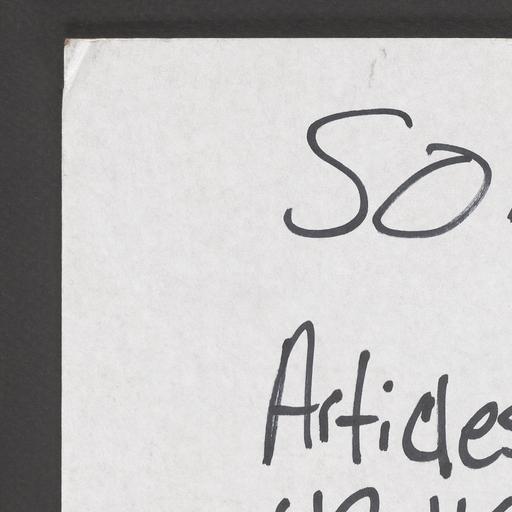 So
Articles